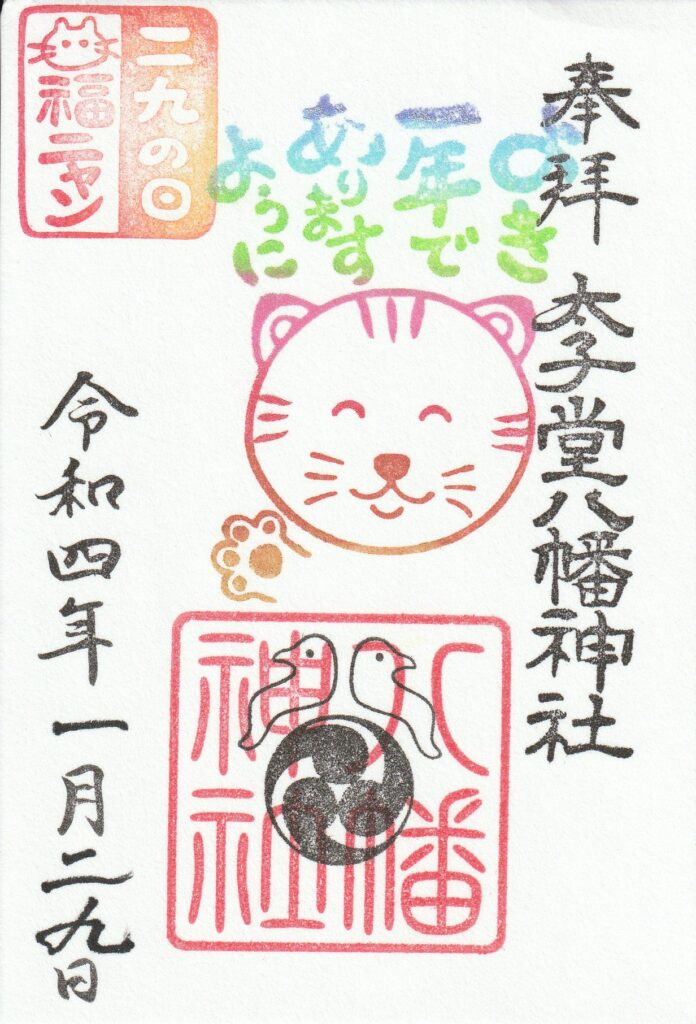 奉拝 太子堂八幡神社
よき
一年で
あります
ように
二九の日
福ニャン
八幡
神社
令和四年一月二九日